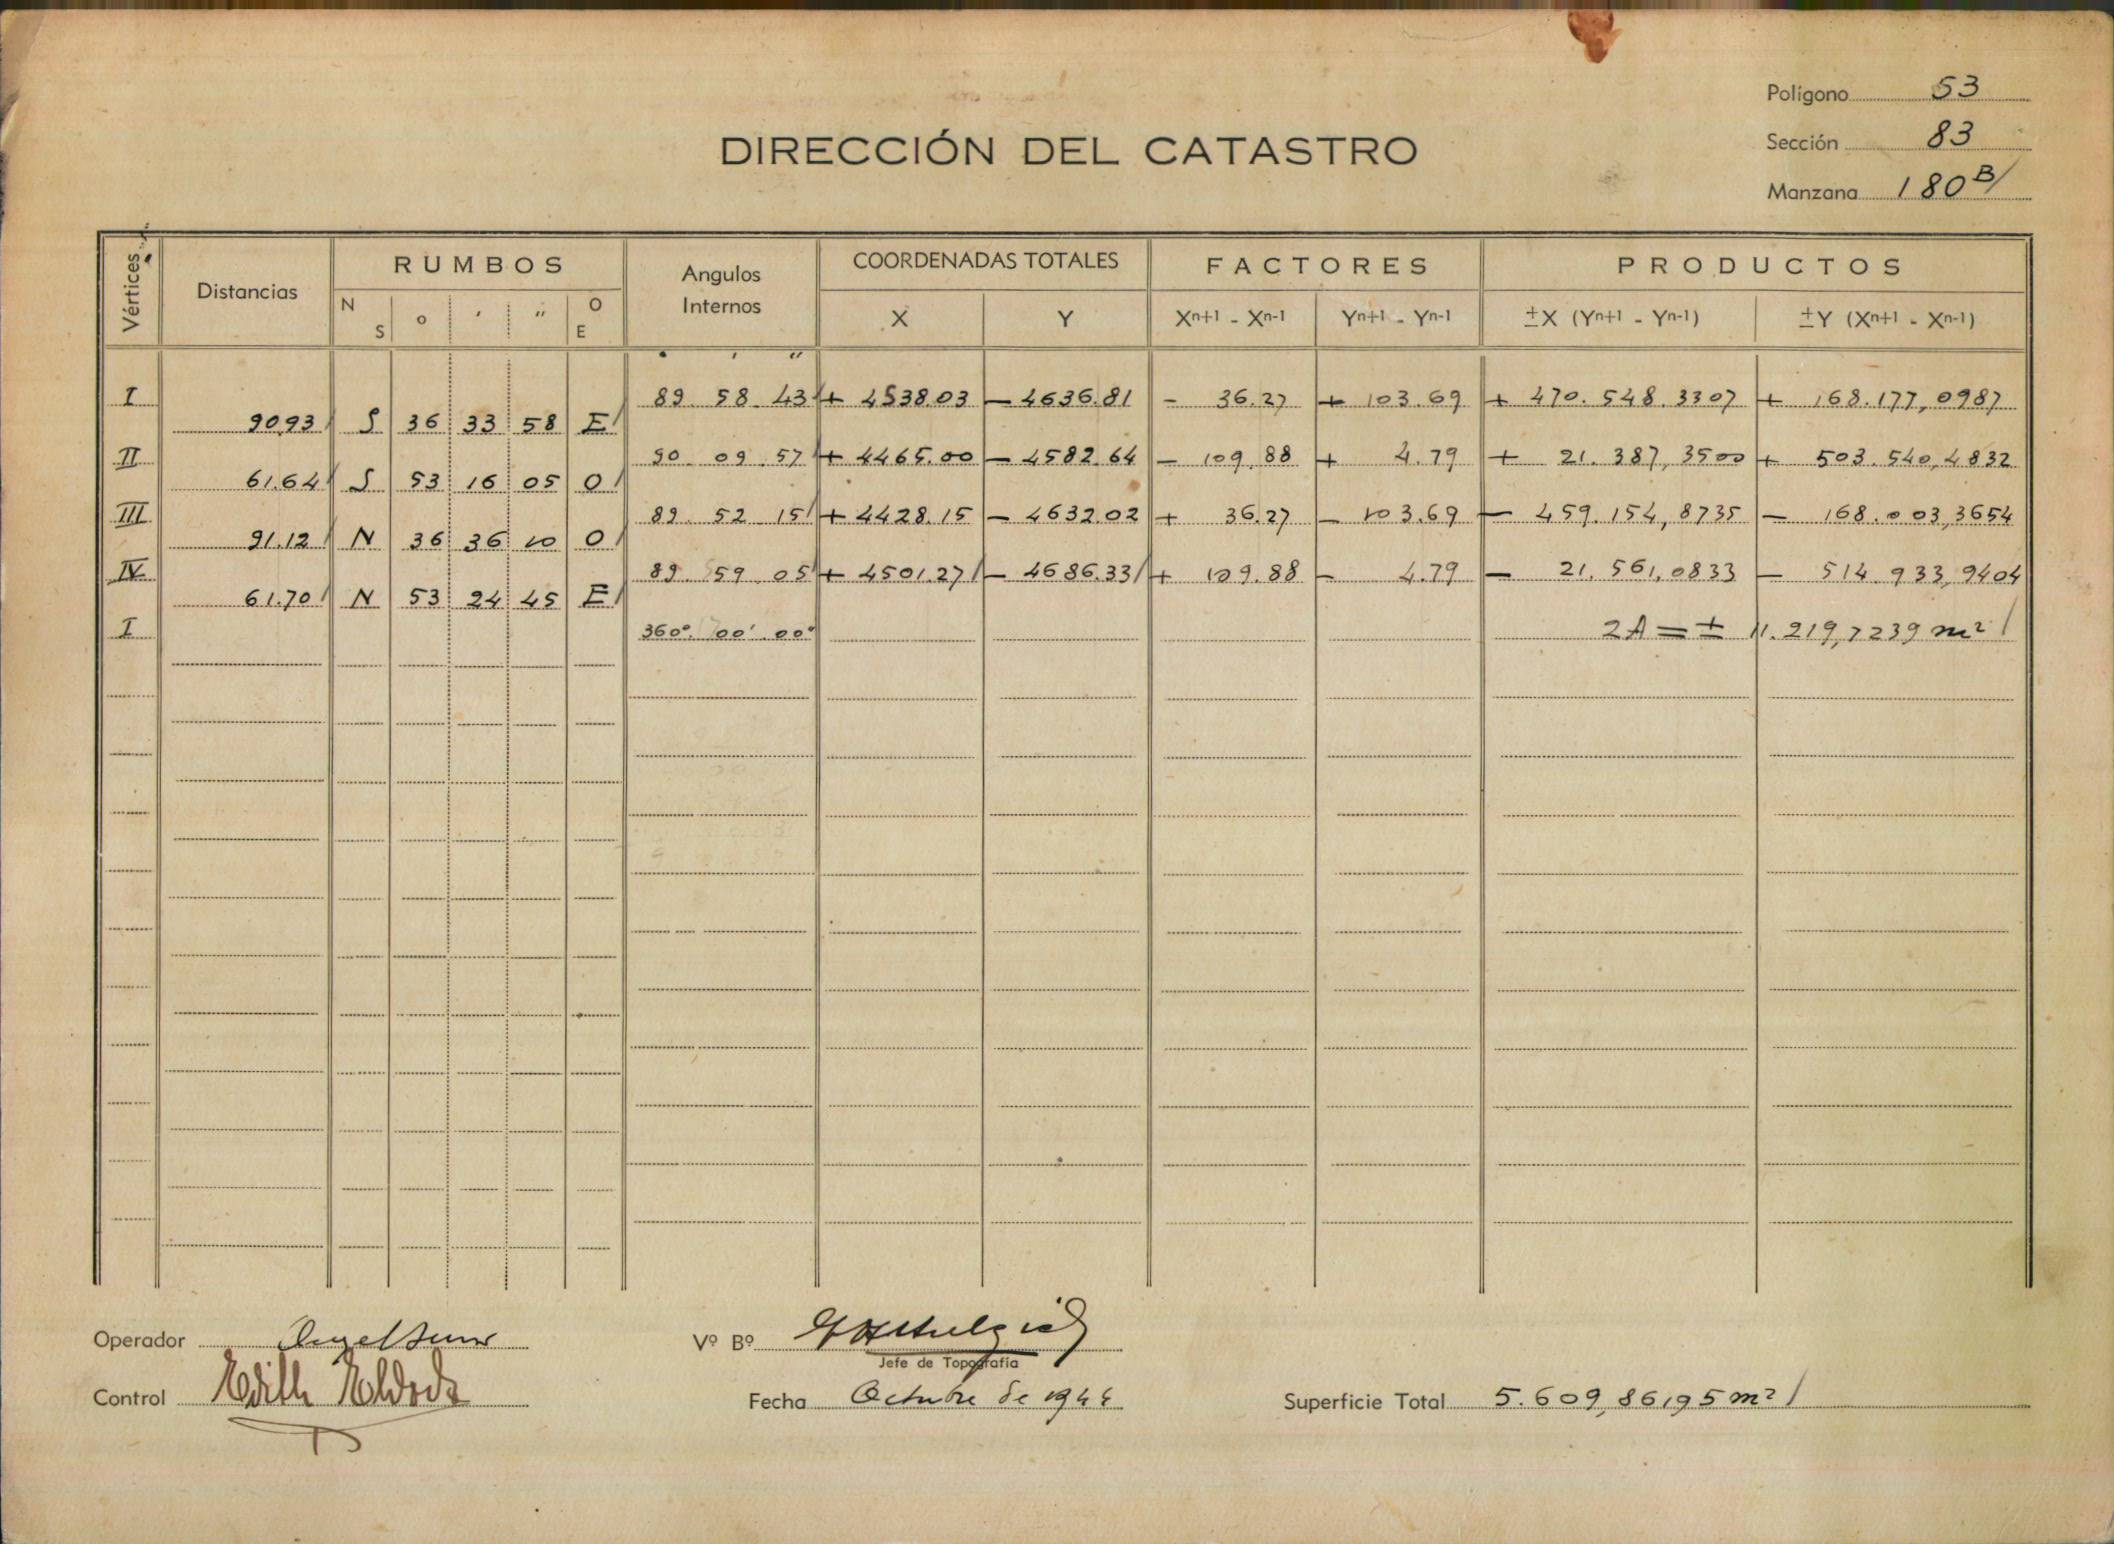 Polígono 53
Sección 83
Manzana 180 B/
DIRECCIÓN DEL CATASTRO
Vértices Distancias RUMBOS Angulos Internos COORDENADAS TOTALES FACTORES PRODUCTOS
N S o ' " O E X Y Xn+1 - Xn-1 Yn+1 - Yn-1 ±X (Yn+1 - Yn-1) ±Y (Xn+1 - Xn-1)
I 89 58 43 + 4538.03 - 4636.81 - 36.27 + 103.69 + 470.548.3307 + 168.177,0987
90.93 S 36 33 58 E
II 90 09 57 + 4465.00 - 4582.64 - 109.88 + 4.79 + 21.387,3500 + 503.540,4832
61.64 S 53 16 05 O
III 89 52 15 + 4428.15 - 4632.02 + 36.27 - 103.69 - 459.154,8735 - 168.003,3654
91.12 N 36 36 10 O
IV 89 59 05 + 4501.27 - 4686.33 + 109.88 - 4.79 - 21.561,0833 - 514.933,9404
61.70 N 53 24 45 E
I 360° 00' 00" 2A = ± 11.219,7239 m²
Operador Vº Bº
Jefe de Topografía
Control Edith Fecha Octubre de 1944 Superficie Total 5.609,86195 m²